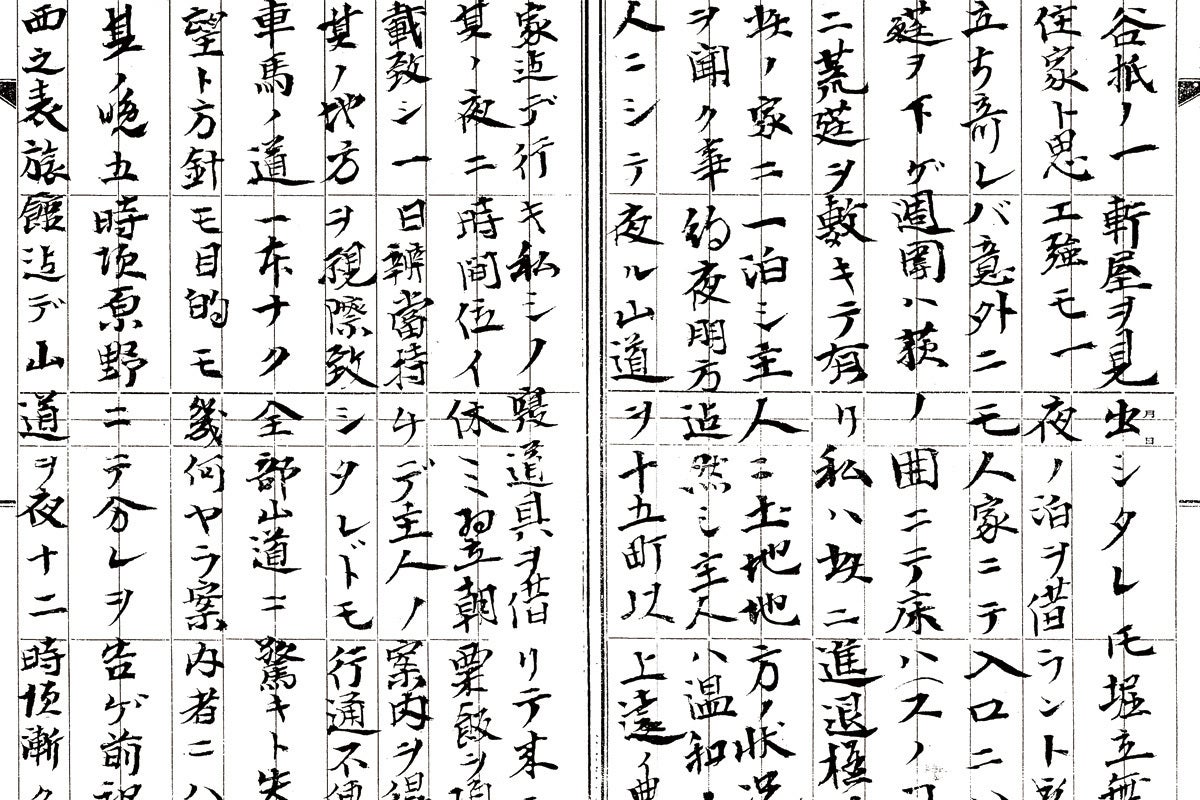 谷抵ノ一軒屋ヲ見出シタレ𪜈堀立無
住家ト思エ強モ一夜ノ泊ヲ借ラント
立ち寄レバ意外ニモ人家ニテ入口ニハ
莚ヲ下ゲ週圍ハ荻ノ囲ニテ床ハ
ニ荒莚ヲ敷キテ有リ私ハ玆ニ進退極
玆ノ家ニ一泊シ主人ニ土地地方ノ状況
ヲ聞ク事約夜明方迠然シ主人ハ温和
人ニシテ夜ル山道ヲ十五町以上遠イ
家迠デ行キ私シノ寝道具ヲ借リテ来
其ノ夜ニ時間伍イ休ミ翌朝粟飯ヲ
載致シ一日辨當持ケデ主人ノ案内ヲ得
其ノ地方ヲ視際致シタレドモ行通不便
車馬ノ道一本ナク全部山道ニ驚キト失
望ト方針モ目的モ幾何ヤラ案内者ニハ
其ノ晩五時頃原野ニテ分レヲ告ゲ前
西之表旅館迠デ山道ヲ夜十二時頃漸ク